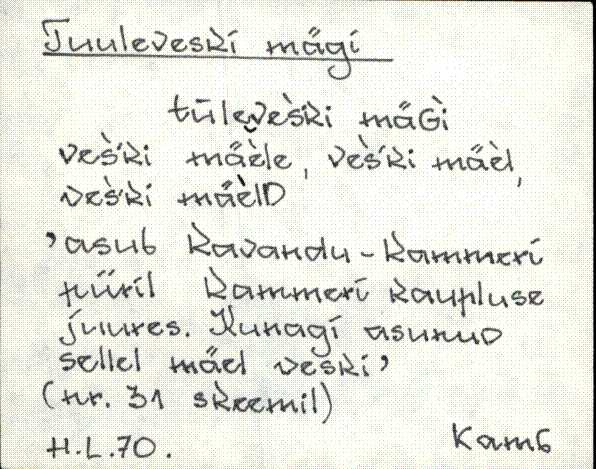 Tuuleveski mägi
tūleve͔s̀'ki mäGì
ves̀'ki mäèle, ves̀'ki mäèl,
ves̀'ki mäèlD
’asub Kavandu-Kammeri
piiril Kammeri kaupluse
juures. Kunagi asunud
sellel mäel veski’
(nr. 31 skeemil)
H.L.70. Kamb